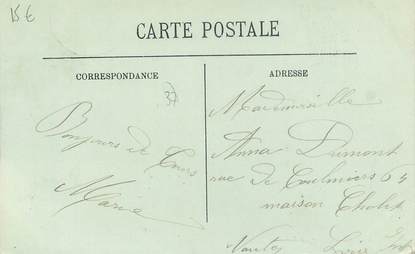 15 €
CARTE POSTALE
CORRESPONDANCE
ADRESSE
37
Mademoiselle
Bonjours de
Anna Dumont
rue de Coulmiers 64
Marie
maison Cholet
Nantes Loire Inf